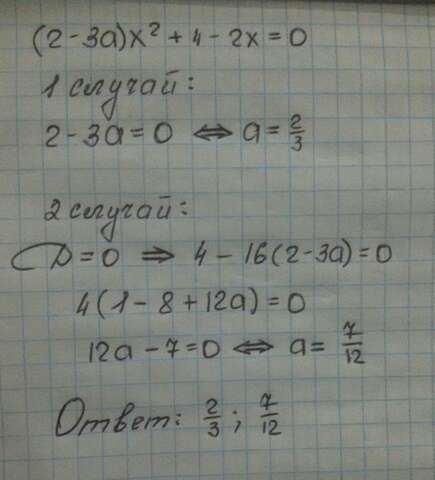 (2-3a)x² + 4 - 2x = 0
1 случай:
2-3a=0 ⇔ a=2/3
2 случай:
D=0 ⇒ 4-16(2-3a)=0
4(1-8+12a)=0
12a-7=0 ⇔ a=7/12
Ответ: 2/3; 7/12